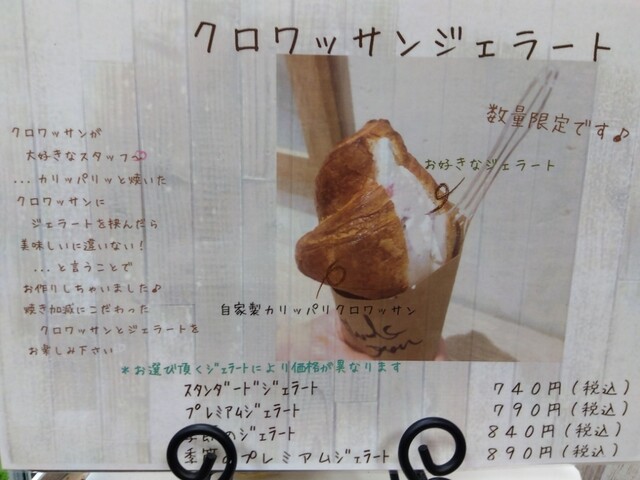 クロワッサンジェラート
数量限定です♪
お好きなジェラート
クロワッサンが
大好きなスタッフ
...カリッパリッと焼いた
クロワッサンに
ジェラートを挟んだら
美味しいに違いない!
...と言うことで
お作りしちゃいました♪
焼き加減にこだわった
クロワッサンとジェラートを
お楽しみ下さい
自家製カリッパリクロワッサン
*お選び頂くジェラートにより価格が異なります
スタンダードジェラート 740円(税込)
プレミアムジェラート 790円(税込)
のジェラート 840円(税込)
季節のプレミアムジェラート 890円(税込)